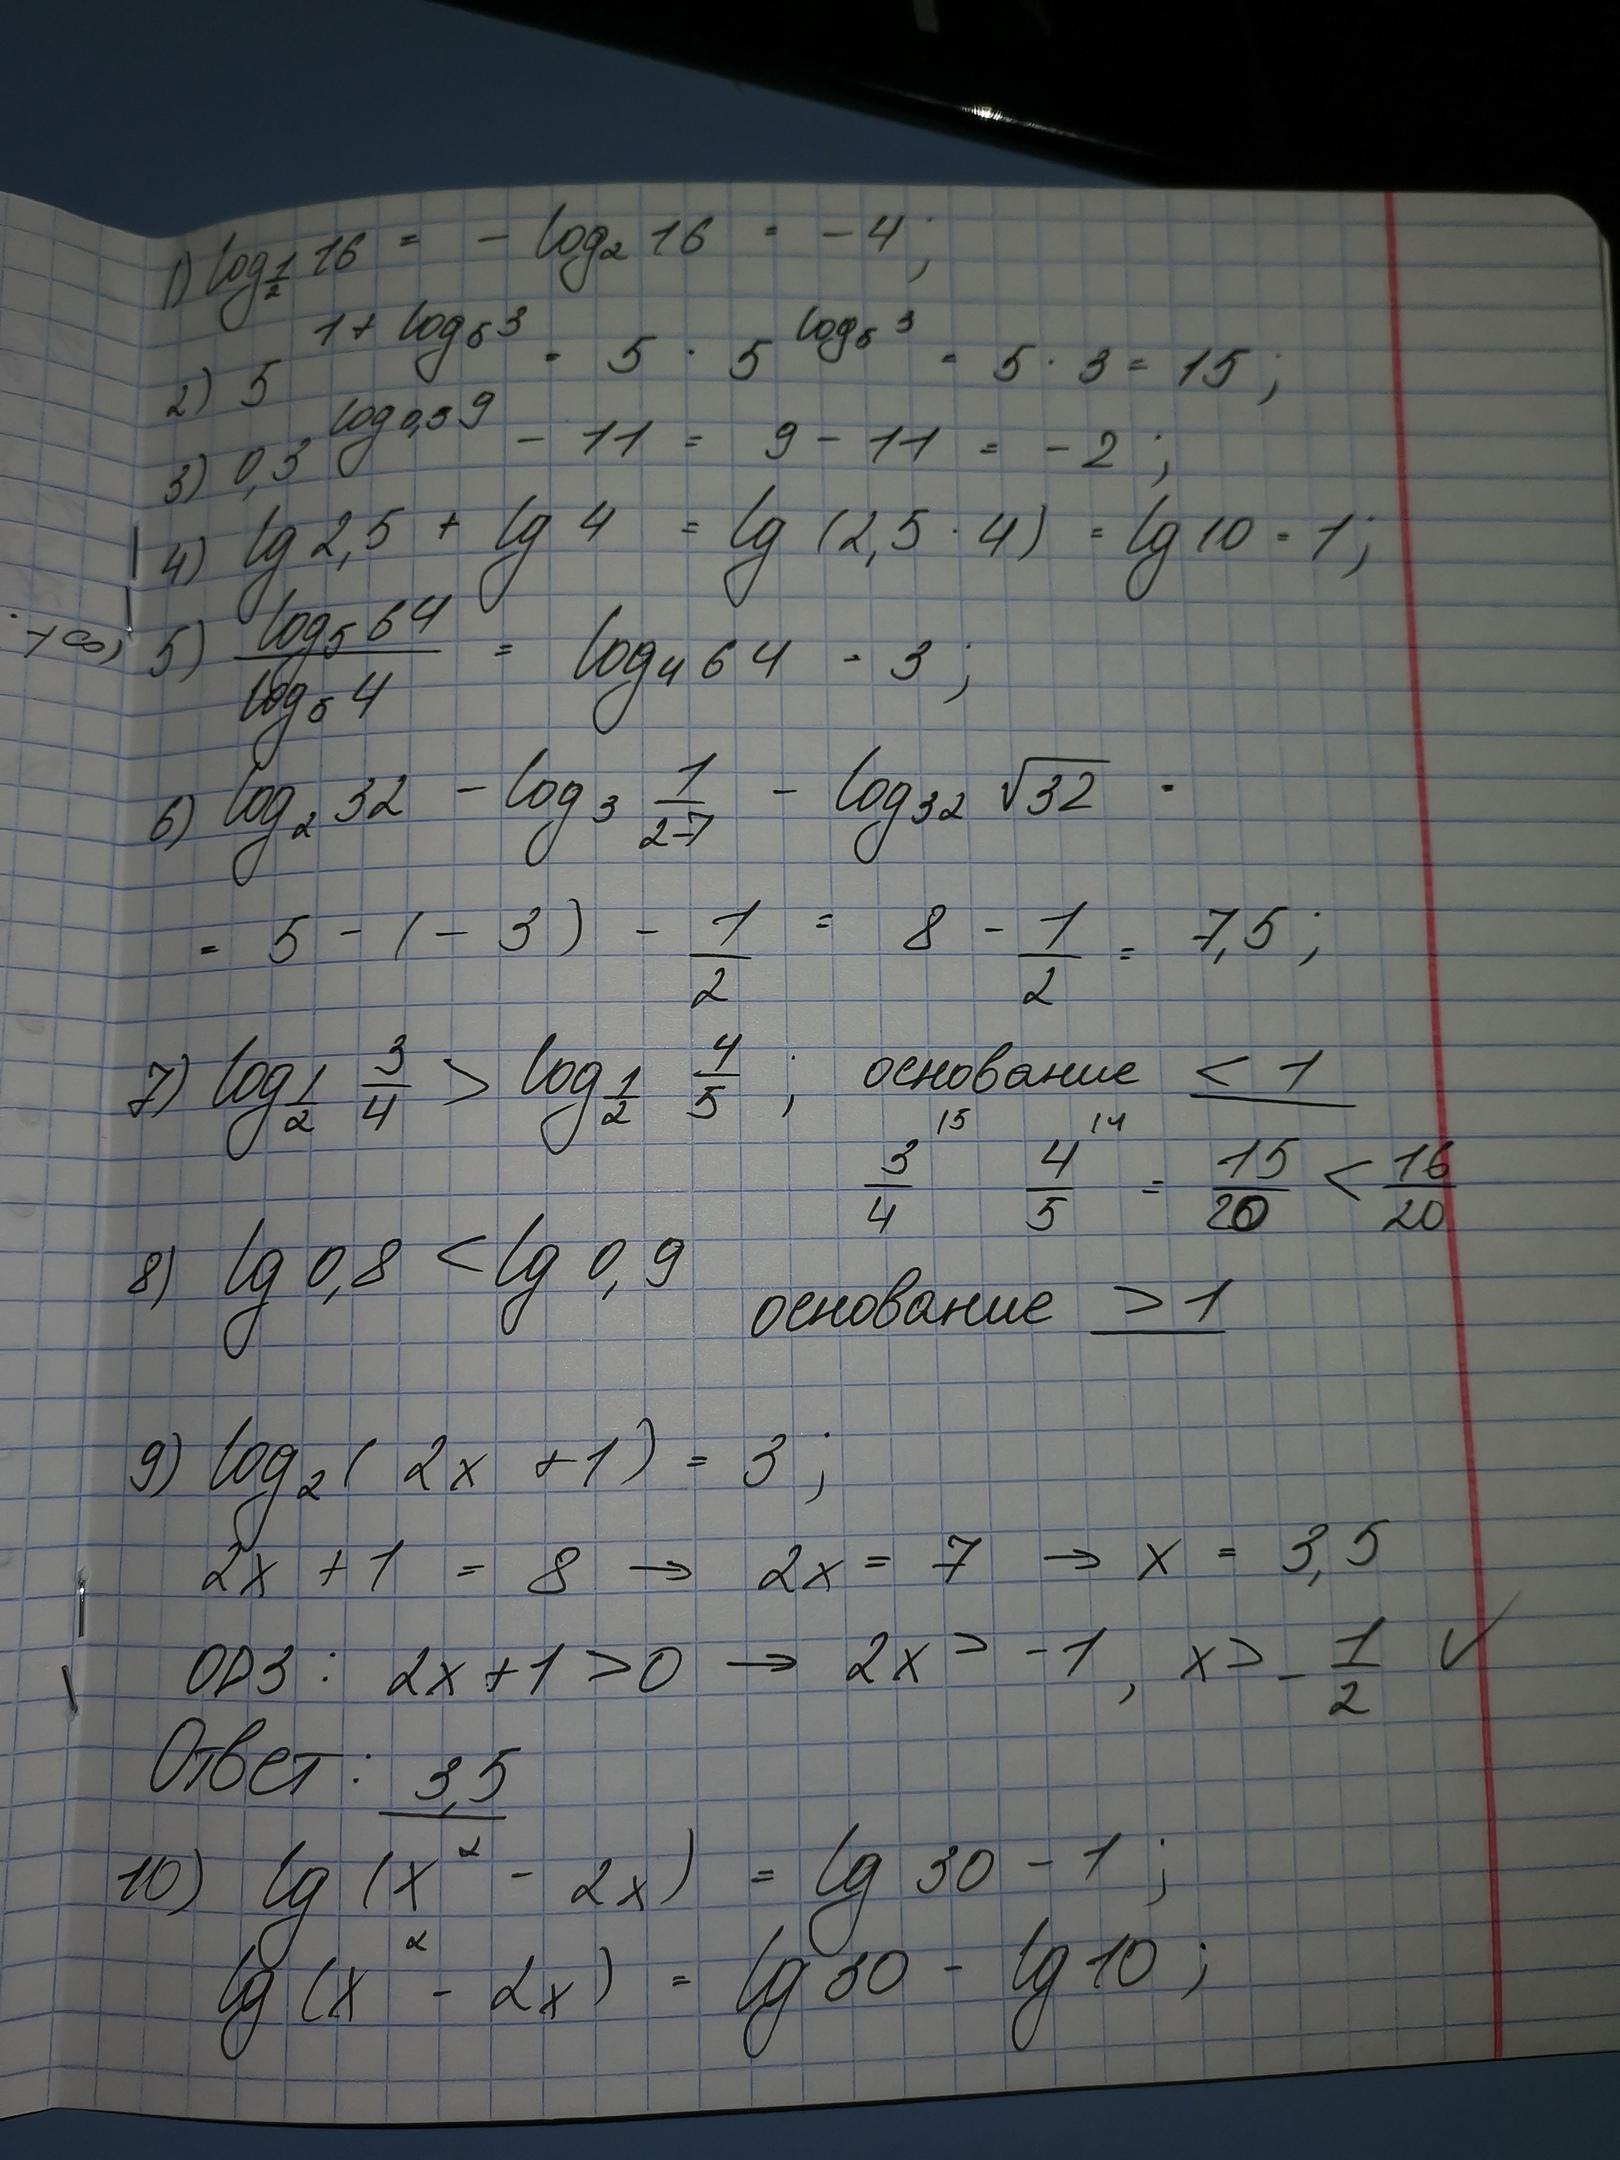 1) log_{1/2} 16 = - log_2 16 = -4;
2) 5^{1 + log_5 3} = 5 · 5^{log_5 3} = 5 · 3 = 15;
3) 0,3^{log_{0,3} 9} - 11 = 9 - 11 = -2;
4) lg 2,5 + lg 4 = lg (2,5 · 4) = lg 10 = 1;
+∞) 5) \frac{log_5 64}{log_5 4} = log_4 64 = 3;
6) log_2 32 - log_3 \frac{1}{27} - log_{32} √32 =
= 5 - (-3) - \frac{1}{2} = 8 - \frac{1}{2} = 7,5;
7) log_{1/2} \frac{3}{4} > log_{1/2} \frac{4}{5}; основание < 1
\frac{3}{4}^{15} \frac{4}{5}^{14} = \frac{15}{20} < \frac{16}{20}
8) lg 0,8 < lg 0,9
основание > 1
9) log_2 (2x + 1) = 3;
2x + 1 = 8 → 2x = 7 → x = 3,5
ОДЗ: 2x + 1 > 0 → 2x > -1, x > -\frac{1}{2} ✓
Ответ: 3,5
10) lg (x² - 2x) = lg 30 - 1;
lg (x² - 2x) = lg 30 - lg 10;